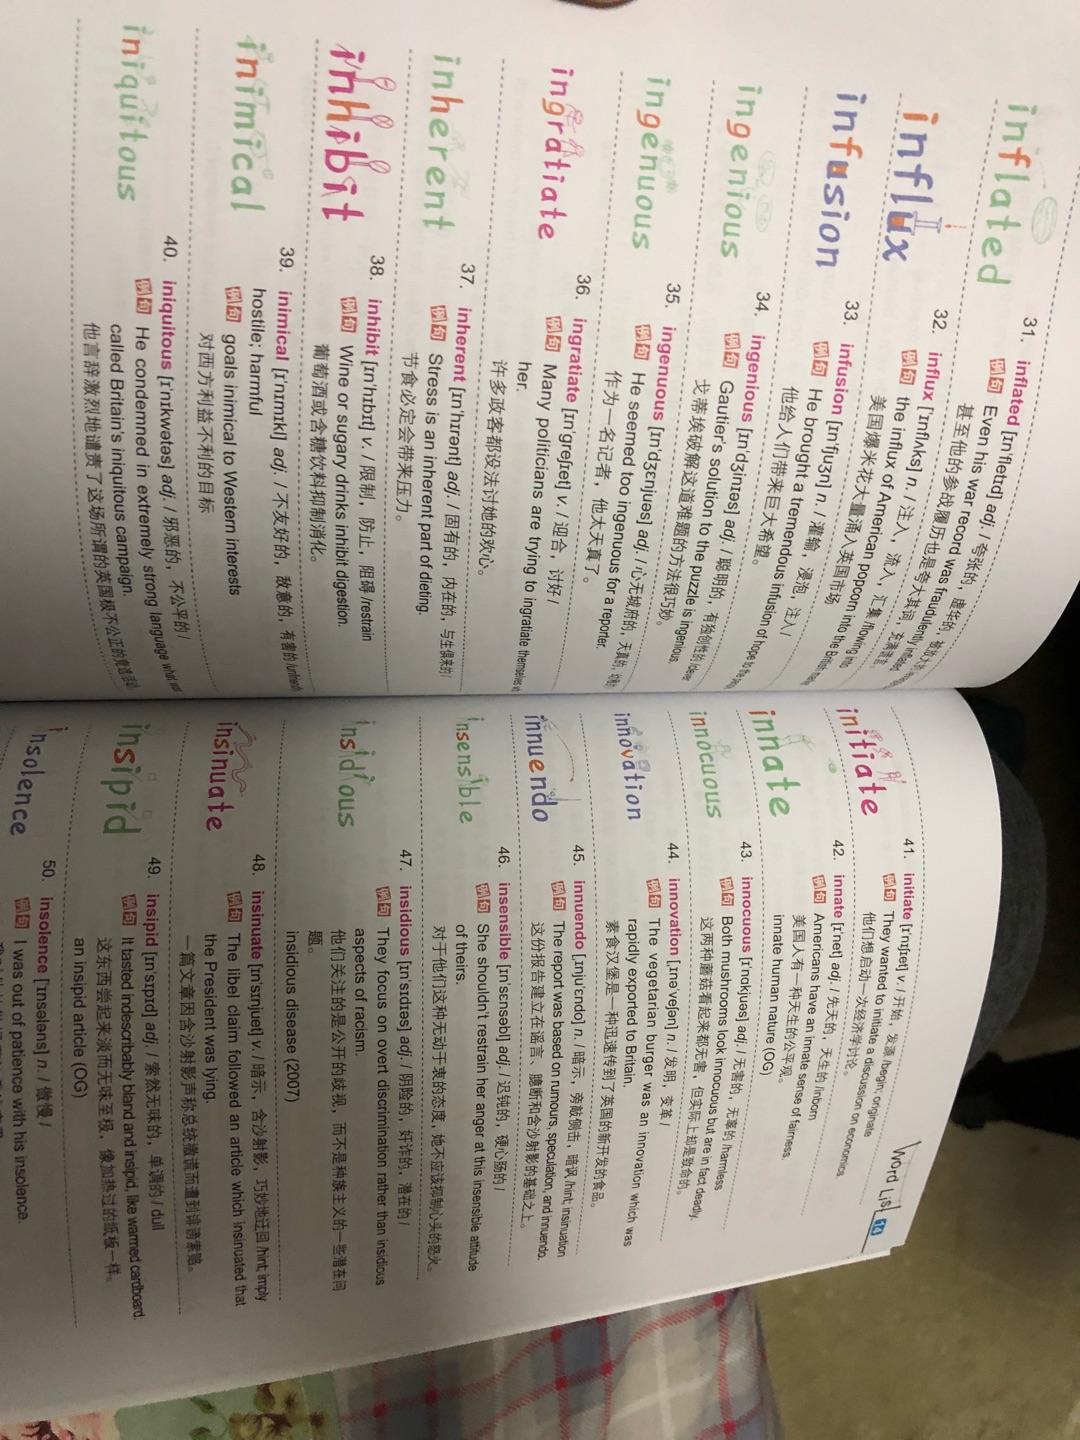 inflated
31. inflated [ɪnˈfletɪd] adj. / 夸张的，虚华的，
例句 Even his war record was fraudulently
甚至他的参战履历也是夸大其词，
influx
32. influx [ˈɪnflʌks] n. / 注入，流入，汇集 /flowing in/
例句 the influx of American popcorn into the British
美国爆米花大量涌入英国市场
infusion
33. infusion [ɪnˈfjuʒn] n. / 灌输，浸泡，注入 /
例句 He brought a tremendous infusion of hope to the
他给人们带来巨大希望。
ingenious
34. ingenious [ɪnˈdʒinɪəs] adj. / 聪明的，有独创性的 /clever
例句 Gautier's solution to the puzzle is ingenious.
戈蒂埃破解这道难题的方法很巧妙。
ingenuous
35. ingenuous [ɪnˈdʒɛnjuəs] adj. / 心无城府的，天真的，
例句 He seemed too ingenuous for a reporter.
作为一名记者，他太天真了。
ingratiate
36. ingratiate [ɪnˈɡreʃɪet] v. / 迎合，讨好 /
例句 Many politicians are trying to ingratiate themselves
her.
许多政客都没法讨她的欢心。
inherent
37. inherent [ɪnˈhɪrənt] adj. / 固有的，内在的，与生俱来的 /
例句 Stress is an inherent part of dieting.
节食必定会带来压力。
inhibit
38. inhibit [ɪnˈhɪbɪt] v. / 限制，防止，阻碍 /restrain
例句 Wine or sugary drinks inhibit digestion.
葡萄酒或含糖饮料抑制消化。
inimical
39. inimical [ɪˈnɪmɪkl] adj. / 不友好的，敌意的，有害的 /unfriendly
hostile; harmful
例句 goals inimical to Western interests
对西方利益不利的目标
iniquitous
40. iniquitous [ɪˈnɪkwətəs] adj. / 邪恶的，不公平的 /
例句 He condemned in extremely strong language what
called Britain's iniquitous campaign.
他言辞激烈地谴责了这场所谓的英国极不公正的竞选活动
Word List 14
initiate
41. initiate [ɪˈnɪʃɪet] v. / 开始，发源 /begin; originate
例句 They wanted to initiate a discussion on economics.
他们想启动一次经济学讨论。
innate
42. innate [ɪˈnet] adj. / 先天的，天生的 /inborn
例句 Americans have an innate sense of fairness.
美国人有一种天生的公平观。
innate human nature (OG)
innocuous
43. innocuous [ɪˈnɑkjuəs] adj. / 无害的，无辜的 /harmless
例句 Both mushrooms look innocuous but are in fact deadly.
这两种蘑菇看起来都无害，但实际上却是致命的。
innovation
44. innovation [ˌɪnəˈveʃən] n. / 发明，变革 /
例句 The vegetarian burger was an innovation which was
rapidly exported to Britain.
素食汉堡是一种迅速传到了英国的新开发的食品。
innuendo
45. innuendo [ˌɪnjuˈɛndo] n. / 暗示，旁敲侧击，暗讽 /hint; insinuation
例句 The report was based on rumours, speculation, and innuendo.
这份报告建立在谣言、臆断和含沙射影的基础之上。
insensible
46. insensible [ɪnˈsɛnsəbl] adj. / 迟钝的，硬心肠的 /
例句 She shouldn't restrain her anger at this insensible attitude
of theirs.
对于他们这种无动于衷的态度，她不应该抑制心头的怒火。
insidious
47. insidious [ɪnˈsɪdɪəs] adj. / 阴险的，奸诈的，潜在的 /
例句 They focus on overt discrimination rather than insidious
aspects of racism.
他们关注的是公开的歧视，而不是种族主义的一些潜在问
题。
insidious disease (2007)
insinuate
48. insinuate [ɪnˈsɪnjuet] v. / 暗示，含沙射影，巧妙地迂回 /hint; imply
例句 The libel claim followed an article which insinuated that
the President was lying.
一篇文章因含沙射影声称总统撒谎而遭到诽谤索赔。
insipid
49. insipid [ɪnˈsɪpɪd] adj. / 索然无味的，单调的 / dull
例句 It tasted indescribably bland and insipid, like warmed cardboard.
这东西尝起来淡而无味至极，像加热过的纸板一样。
an insipid article (OG)
insolence
50. insolence [ˈɪnsələns] n. / 傲慢 /
例句 I was out of patience with his insolence.